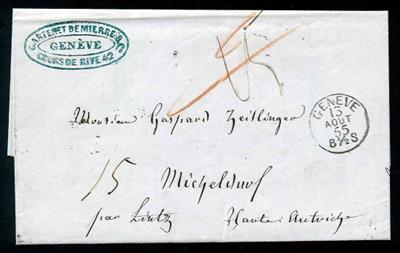 CARTERET DEMIERRE & Cº
GENÈVE
COURS DE RIVE 42
GENÈVE
15
AOUT
55
8½ S
Monsieur Gaspard Zeitlinger
15
Micheldorf
par Lintz Haute Autriche